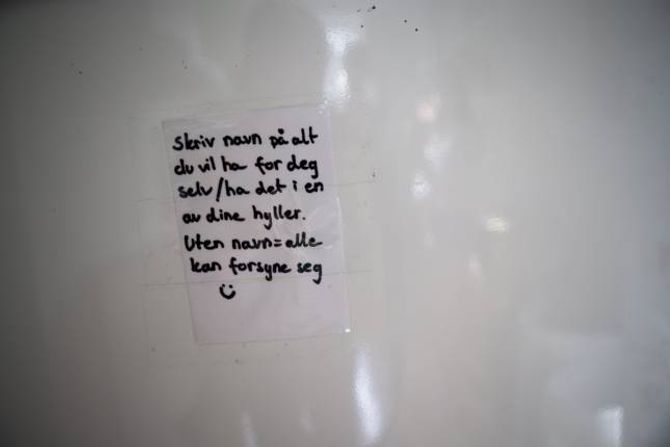 Skriv navn på alt
du vil ha for deg
selv/ha det i en
av dine hyller.
Uten navn=alle
kan forsyne seg